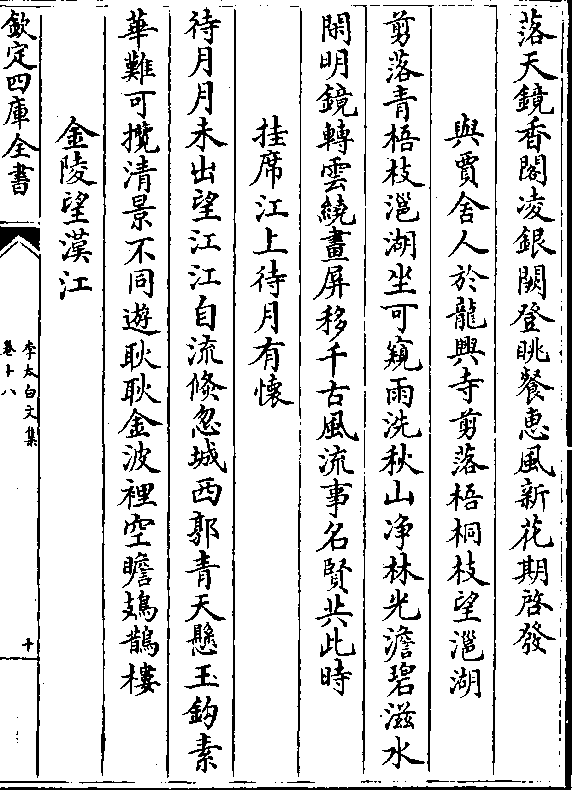 落天鏡香閣凌銀闕登眺餐惠風新花期啓發
與賈舍人於龍興寺剪落梧桐枝望㴩湖
剪落青梧枝㴩湖坐可窺雨洗秋山净林光澹碧滋水
閑明鏡轉雲繞畫屏移千古風流事名賢共此時
挂席江上待月有懷
待月月未出望江江自流倐忽城西郭青天懸玉鈎素
華難可攬清景不同遊耿耿金波裡空瞻鳷鵲樓
金陵望漢江
欽定四庫全書
李太白文集
卷十八
十